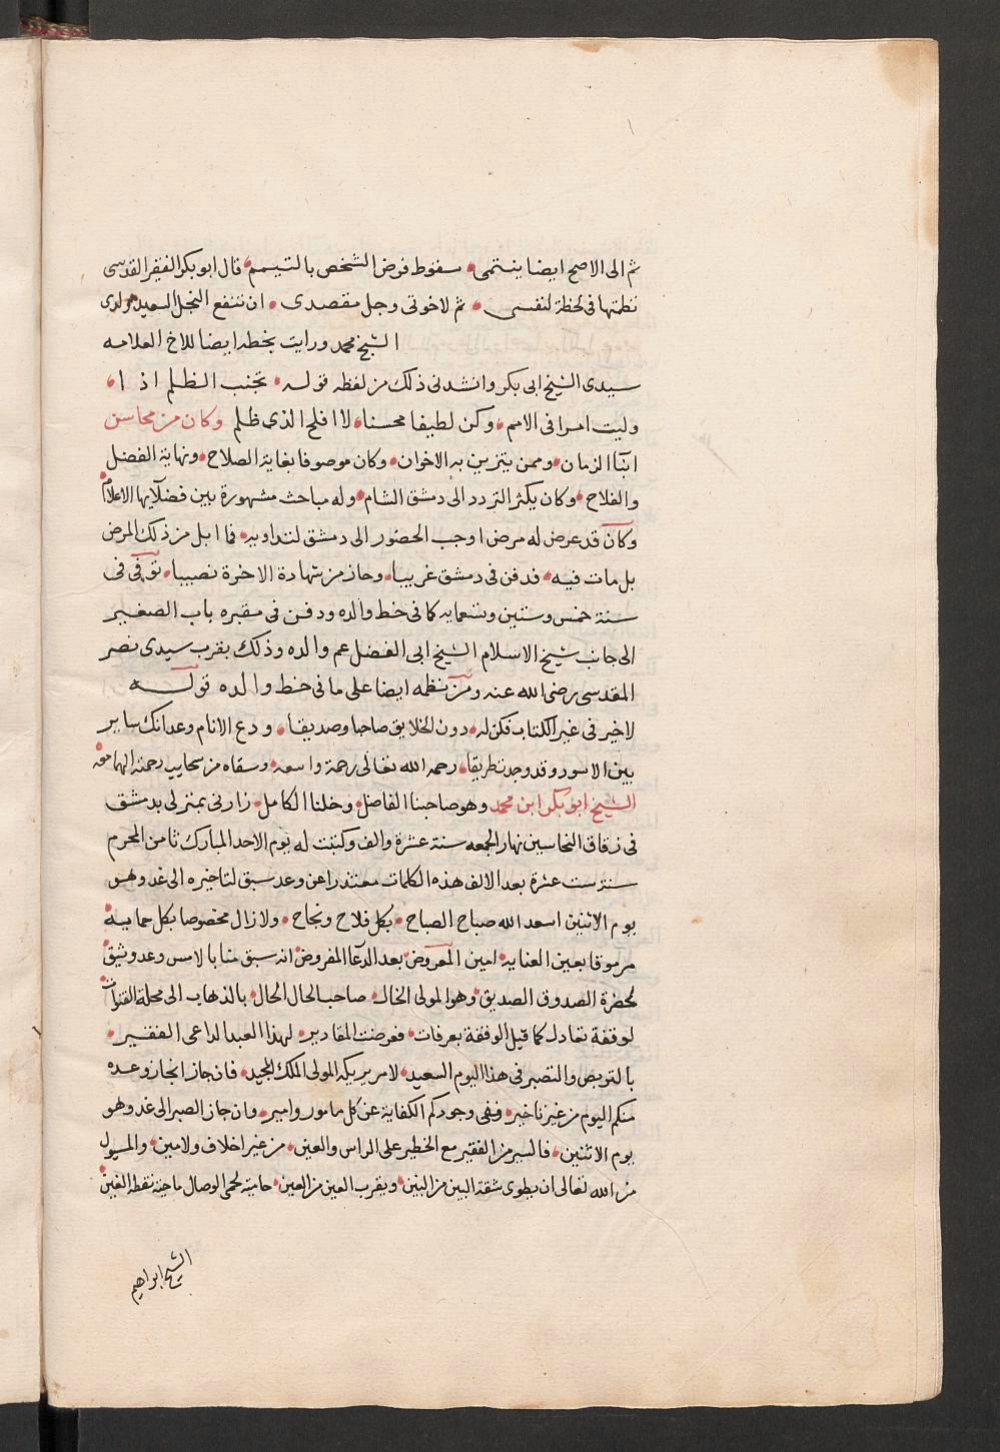 ثم الى الاصح ايضا ينتمى سقوط فرض الشخص بالتيمم قال ابو بكر الفقير القدسى
نظمتها فى لحظة لنفسى ثم لاخوتى وجل مقصدى ان تنفع النجل السعيد ولدى
الشيخ محمد ورايت بخطه ايضا للاخ العلامه
سيدى الشيخ ابى بكر وانشدنى ذلك من لفظه قوله تجنب الظلم اذا
وليت امرا فى الامم وكن لطيفا محسنا لا افلح الذى ظلم وكان من محاسن
ابنآ الزمان وممن يتزين به الاخوان وكان موصوفا بغاية الصلاح ونهاية الفضل
والفلاح وكان يكثر التردد الى دمشق الشام وله مباحث مشهورة بين فضلآيها الاعلام
وكان قد عرض له مرض اوجب الحضور الى دمشق لتداويه فما ابل من ذلك المرض
بل مات فيه فدفن فى دمشق غريبا وحاز من شهادة الاخرة نصيبا توفى فى
سنة خمس وستين وتسعمايه كما فى خط والده ودفن فى مقبره باب الصغير
الى جانب شيخ الاسلام الشيخ ابى الفضل عم والده وذلك بقرب سيدى نصر
المقدسى رضى الله عنه ومن نظمه ايضا على ما فى خط والده قوله
لا خير فى غير الكتاب فكن له دون الخلايق صاحبا وصديقا ودع الانام وعد انك ساير
بين الاسود وقد وجد طريقا رحمه الله تعالى رحمة واسعه وسقاه من سحايب رحمته الهامعه
الشيخ ابو بكر ابن محمد وهو صاحبنا الفاضل وخلنا الكامل زارنى بمنزلى بدمشق
فى زقاق النحاسين نهار الجمعه سنة عشرة والف وكتبت له يوم الاحد المبارك ثامن المحرم
سنة ست عشرة بعد الالف هذه الكلمات معتذرا عن وعد سبق لتاخيره الى غد وهو
يوم الاثنين اسعد الله صباح الصباح بكل فلاح ونجاح ولا زال مخصوصا بكل حمايه
مرموقا بعين العنايه امين المعروض بعد الدعآ المفروض انه سبق منا بالامس وعد وثيق
لحضرة الصدوق الصديق وهو المولى الخال صاحب الحال الحال بالذهاب الى محلة القنوات
لوقفة تعادل كما قيل الوقفة بعرفات فعرضت المقادير لهذا العبد الداعى الفقير
بالتربص والتصبر فى هذا اليوم السعيد لامر يريكه المولى الملك المجيد فان جاز انجاز وعده
منكم اليوم من غير تاخير ففى وجودكم الكفاية عن كل مامور وامير وان جاز الصبر الى غد وهو
يوم الاثنين فالسير من الفقير مع الخطير على الراس والعين من غير اخلاف ولا مين والمسول
من الله تعالى ان يطوى شقة البين من البين ويقرب العين من العين حاميه لحمى الوصال ماحية نقطة الغين
الشيخ ابراهيم